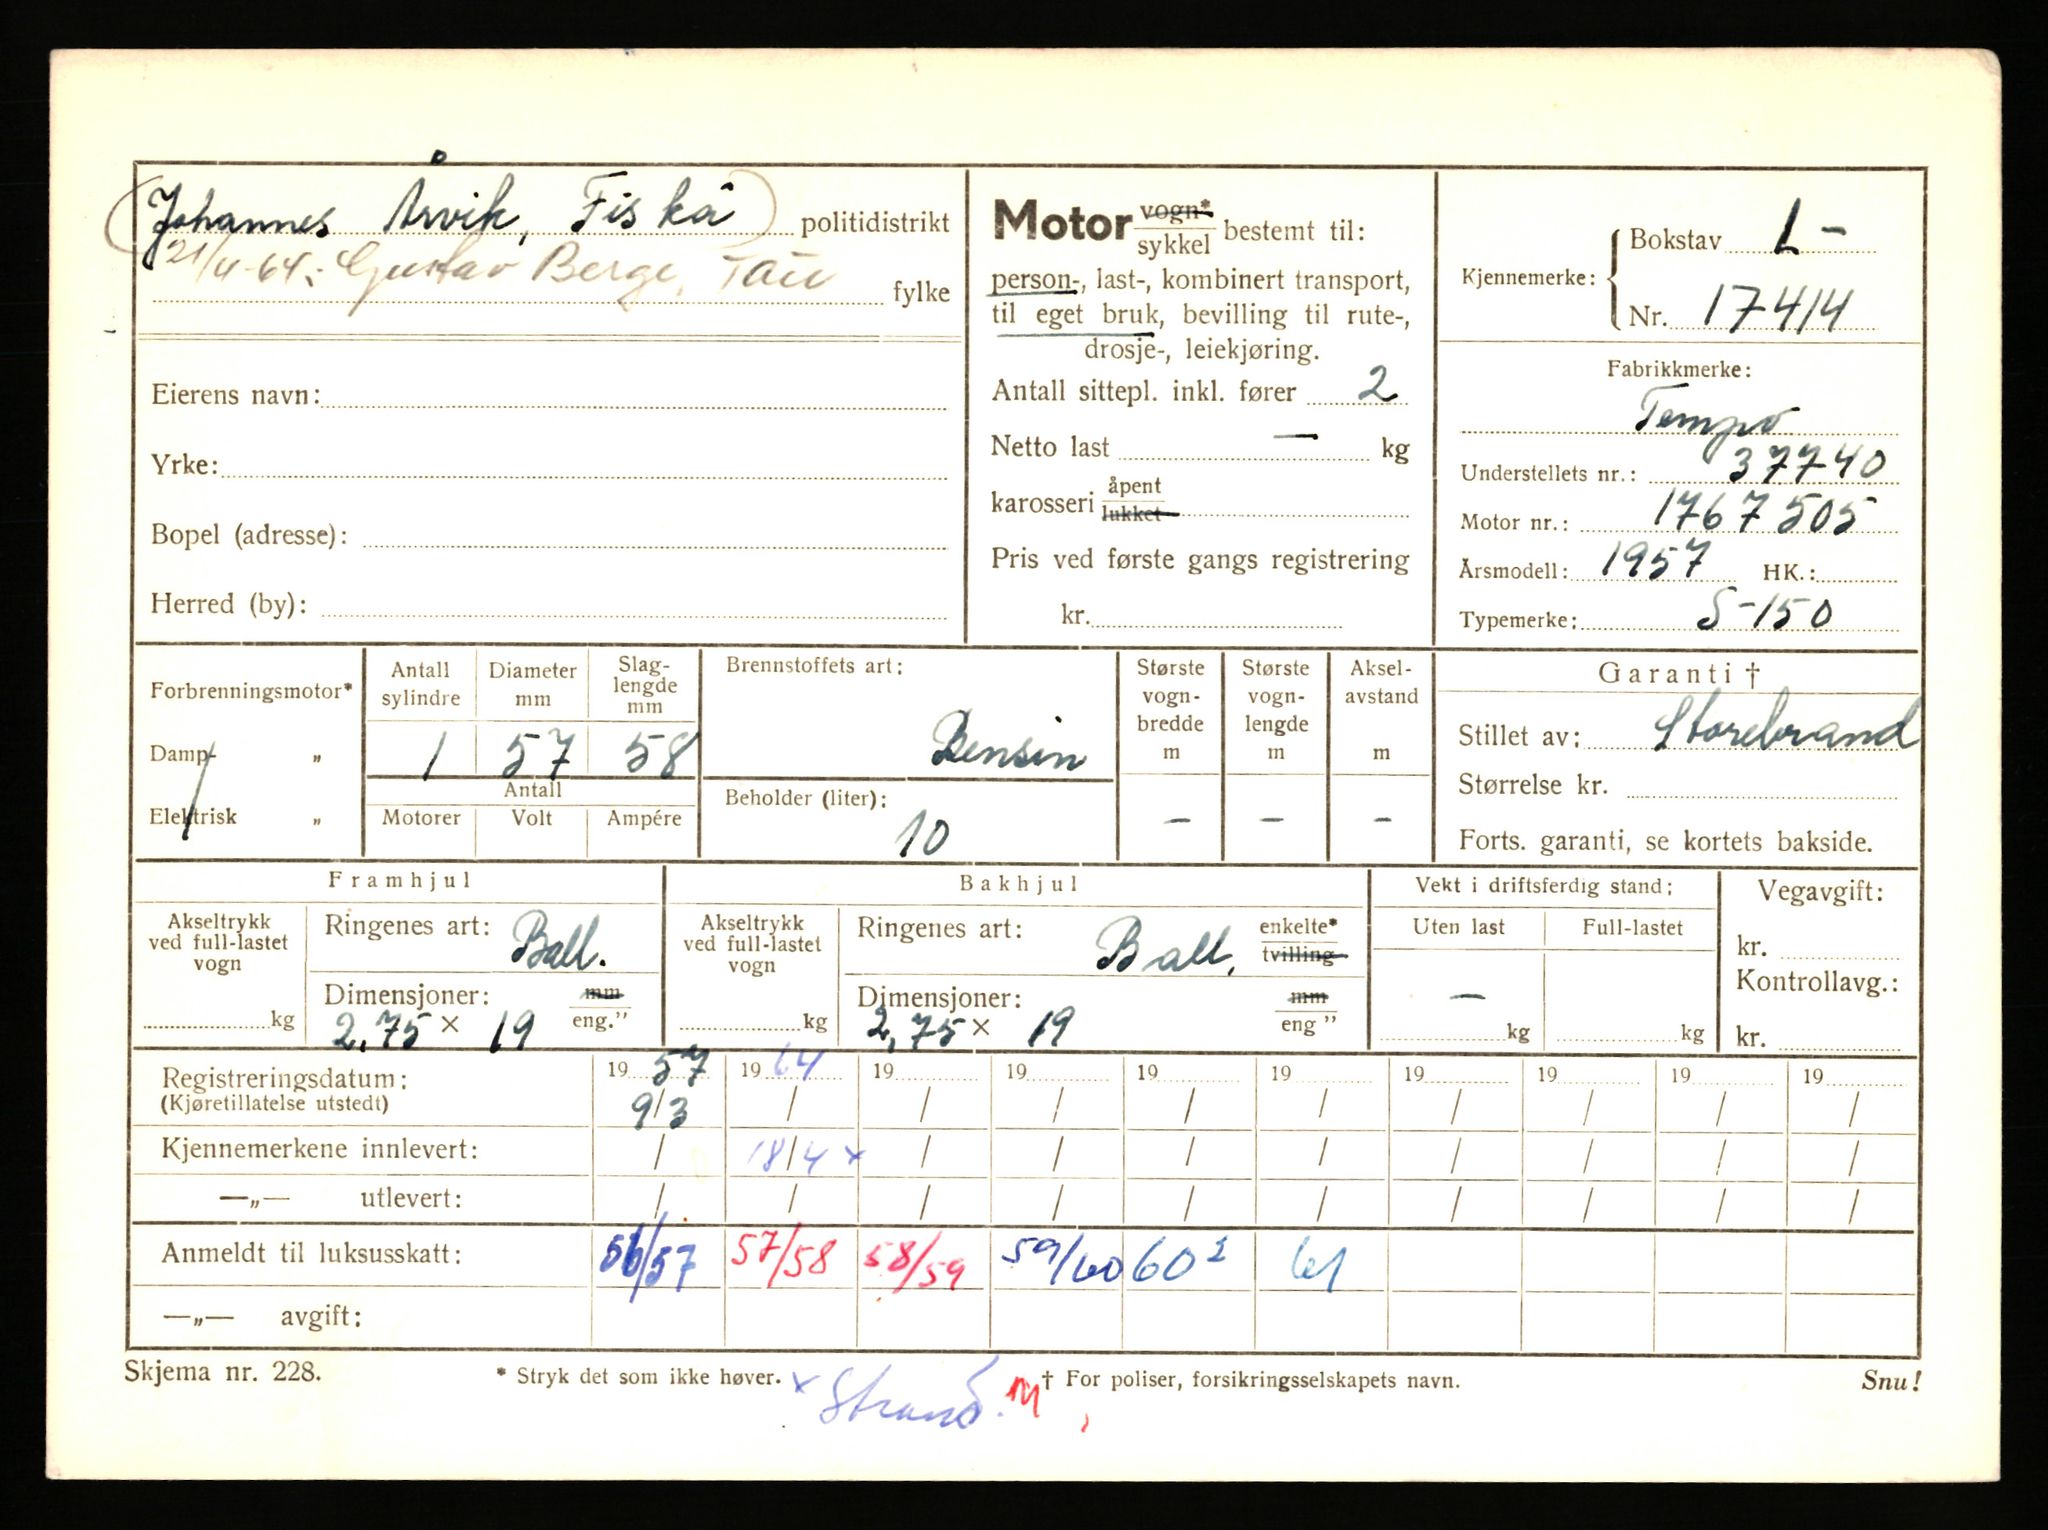 (Johannes Årvik, Fiskå) politidistrikt
21/4-64: Gustav Berge, Tau fylke
Eierens navn:
Yrke:
Bopel (adresse):
Herred (by):
Motor vogn* sykkel bestemt til:
person-, last-, kombinert transport,
til eget bruk, bevilling til rute-,
drosje-, leiekjøring.
Antall sittepl. inkl. fører 2
Netto last — kg
karosseri åpent lukket
Pris ved første gangs registrering
kr.
Kjennemerke: Bokstav L-
Nr. 17414
Fabrikkmerke:
Tempo
Understellets nr.: 37740
Motor nr.: 1767505
Årsmodell: 1957 HK.:
Typemerke: S-150
Forbrenningsmotor*
Damp- „
Elektrisk „
Antall sylindre
Diameter mm
Slag-lengde mm
1 57 58
Antall
Motorer Volt Ampére
Brennstoffets art:
Bensin
Beholder (liter):
10
Største vogn-bredde m
Største vogn-lengde m
Aksel-avstand m
— — —
Garanti †
Stillet av: Storebrand
Størrelse kr.
Forts. garanti, se kortets bakside.
Framhjul
Akseltrykk ved full-lastet vogn
kg
Ringenes art: Ball.
Dimensjoner: mm eng."
2,75 × 19
Bakhjul
Akseltrykk ved full-lastet vogn
kg
Ringenes art: Ball. enkelte* tvilling
Dimensjoner: mm eng "
2,75 × 19
Vekt i driftsferdig stand:
Uten last Full-lastet
— kg kg
Vegavgift:
kr.
Kontrollavg.:
kr.
Registreringsdatum: 19 57 19 64 19 19 19 19 19 19 19 19
(Kjøretillatelse utstedt) 9/3 / / / / / / / / /
Kjennemerkene innlevert: / 18/4 × / / / / / / / /
—„— utlevert: / / / / / / / / / /
Anmeldt til luksusskatt: 56/57 57/58 58/59 59/60 60² 61
—„— avgift:
Skjema nr. 228. * Stryk det som ikke høver. † For poliser, forsikringsselskapets navn. Snu!
× Strand. M